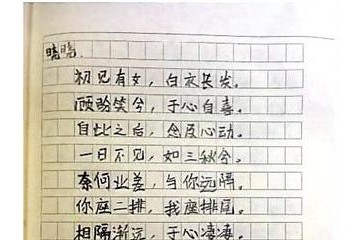 晓晓：
初见有女，白衣长发。
顾盼笑兮，于心自喜。
自此之后，念及心动。
一日不见，如三秋兮。
奈何业差，与你远隔。
你座二排，我座排尾。
相隔渐远，于心凄凄。